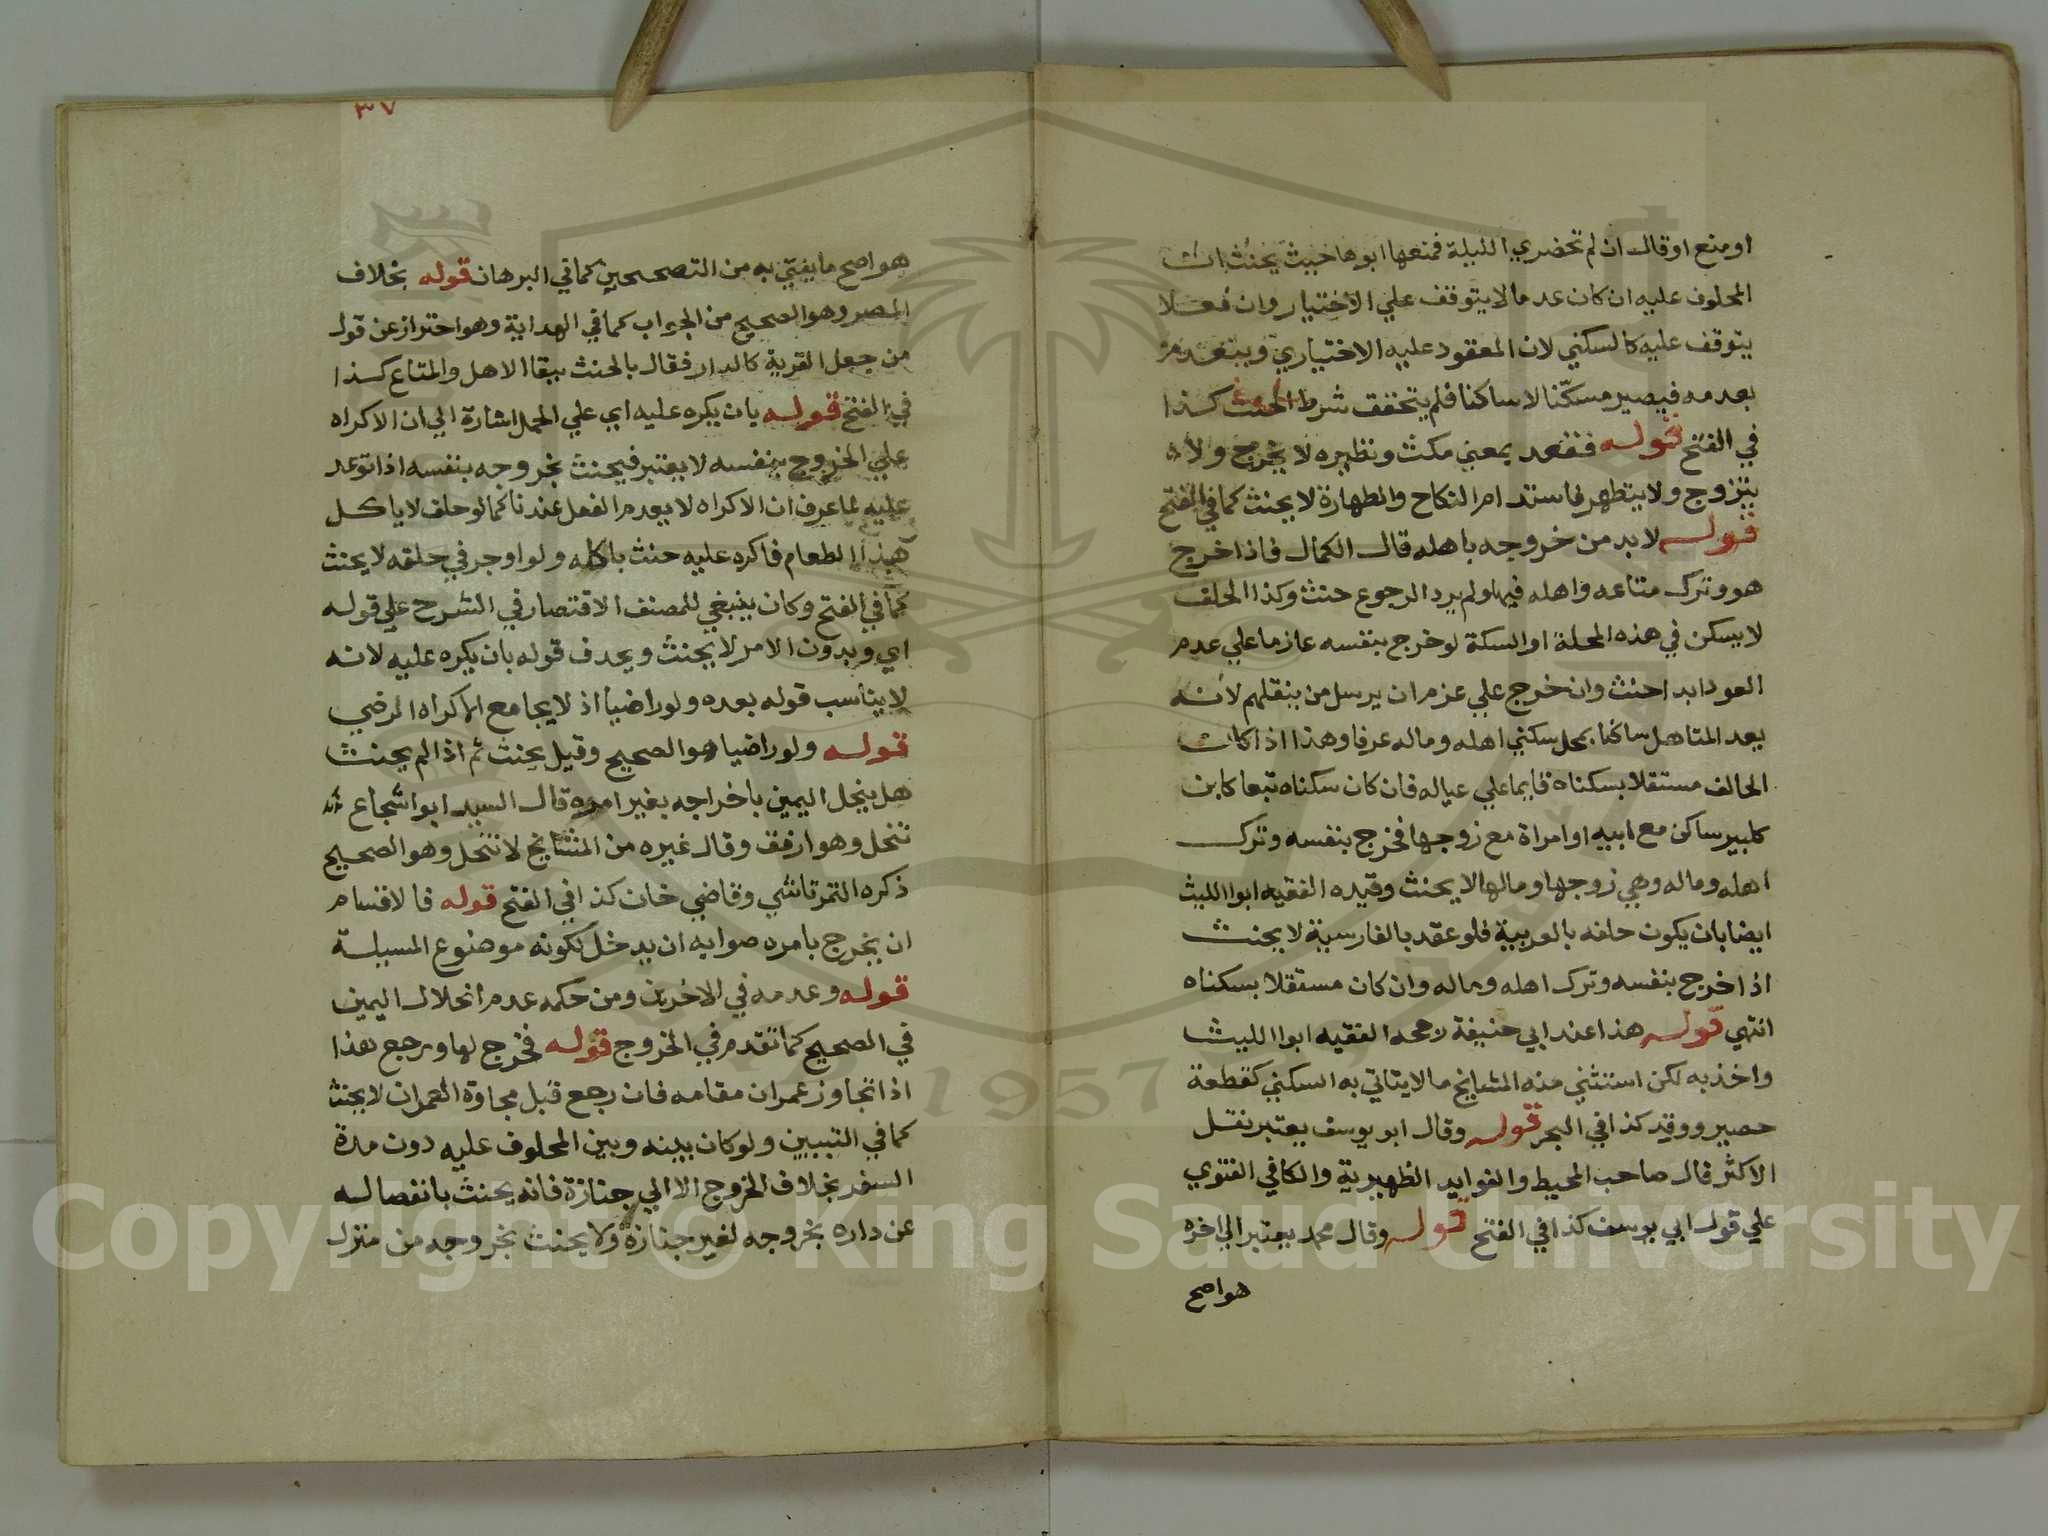 او منع او قال ان لم تحضري الليلة فمنعها ابوها حيث يحنث ان
المحلوف عليه ان كان عدما لا يتوقف علي الاختيار وان فعلا
يتوقف عليه كالسكني لان المعقود عليه الاختياري وينعدم
بعدمه فيصير مسكّنا لا ساكنا فلم يتحقق شرط الحنث كذا
في الفتح قوله فقعد بمعني مكث ونظيره لا يخرج ولا
يتزوج ولا يتطهر فاستدام النكاح والطهارة لا يحنث كما في الفتح
قوله لا بد من خروجه باهله قال الكمال فاذا خرج
هو وترك متاعه واهله فيها ولم يرد الرجوع حنث وكذا الحلف
لا يسكن في هذه المحلة او السكة لو خرج بنفسه عازما علي عدم
العود ابدا حنث وان خرج علي عزم ان يرسل من ينقلهم لانه
يعد المتاهل ساكنا بمحل سكني اهله وماله عرفا وهذا اذا كان
الحالف مستقلا بسكناه قايما علي عياله فان كان سكناه تبعا كابن
كبير ساكن مع ابيه او امراة مع زوجها فخرج بنفسه وترك
اهله وماله وهي زوجها ومالها لا يحنث وقيده الفقيه ابو الليث
ايضا بان يكون حلفه بالعربية فلو عقد بالفارسية لا يحنث
اذا خرج بنفسه وترك اهله وماله وان كان مستقلا بسكناه
انتهي قوله هذا عند ابي حنيفة رجحه الفقيه ابوا الليث
واخذ به لكن استثني منه المشايخ ما لا يتاتي به السكني كقطعة
حصير ووتد كذا في البحر قوله وقال ابو يوسف يعتبر نقل
الاكثر قال صاحب المحيط والفوايد الظهيرية والكافي الفتوي
علي قول ابي يوسف كذا في الفتح قوله وقال محمد يعتبر الي اخره
هو اصح
٣٧
هو اصح ما يفتي به من التصحيحين كما في البرهان قوله بخلاف
المصر وهو الصحيح من الجواب كما في الهداية وهو احتراز عن قول
من جعل القرية كالدار فقال بالحنث ببقا الاهل والمتاع كذا
في الفتح قوله بان يكره عليه اي علي الحمل اشارة الي ان الاكراه
علي الخروج بنفسه لا يعتبر فيحنث بخروجه بنفسه اذا توعد
عليه لما عرف ان الاكراه لا يعدم الفعل عندنا كما لو حلف لا ياكل
هذا الطعام فاكره عليه حنث باكله ولو اوجر في حلقه لا يحنث
كما في الفتح وكان ينبغي للمصنف الاقتصار في الشرح علي قوله
اي وبدون الامر لا يحنث ويحدف قوله بان يكره عليه لانه
لا يناسب قوله بعده ولو راضيا اذ لا يجامع الاكراه الرضي
قوله ولو راضيا هو الصحيح وقيل يحنث ثم اذا لم يحنث
هل ينحل اليمين باخراجه بغير امره قال السيد ابو اشجاع
تنحل وهو ارفق وقال غيره من المشايخ لا تنحل وهو الصحيح
ذكره التمرتاشي وقاضي خان كذا في الفتح قوله فالاقسام
ان يخرج بامره صوابه ان يدخل لكونه موضوع المسيلة
قوله وعدمه في الاخرين ومن حكمه عدم انحلال اليمين
في الصحيح كما تقدم في الخروج قوله فخرج لها ورجع هذا
اذا تجاوز عمران مقامه فان رجع قبل مجاوة العمران لا يحنث
كما في التبيين ولو كان بينه وبين المحلوف عليه دون مدة
السفر بخلاف الخروج الا الي جنازة فانه يحنث بانفصاله
عن داره بخروجه لغير جنازة ولا يحنث بخروجه من منزل
1957
Copyright © King Saud University